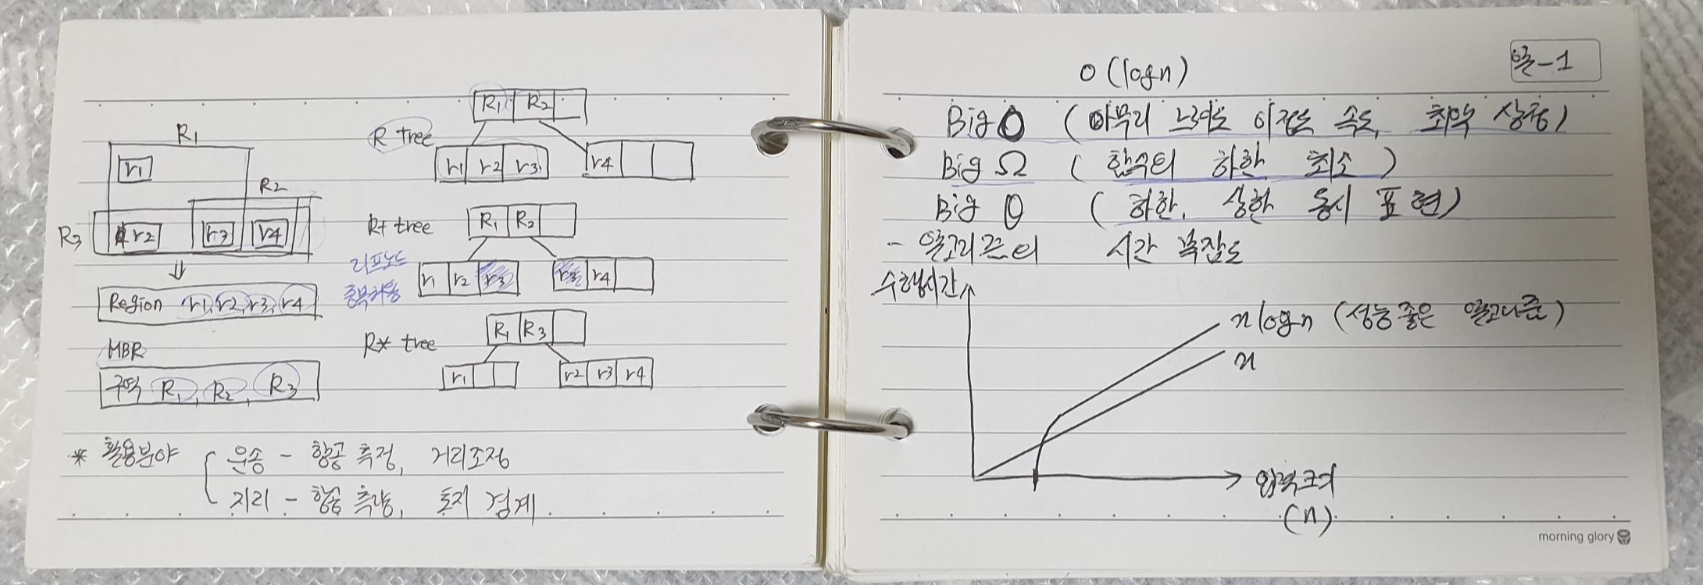 R₁
r₁
R₂
R₃
r₂ r₃ r₄
⇓
Region r₁, r₂, r₃, r₄
MBR
구역 R₁, R₂, R₃
R tree
R₁ R₂
r₁ r₂ r₃ r₄
R+ tree
리프노드
중복허용
R₁ R₂
r₁ r₂ r₃ r₃ r₄
R* tree
R₁ R₃
r₁ r₂ r₃ r₄
* 활용분야
운송 - 항공 측정, 거리조정
지리 - 항공 측량, 토지 경계
알-1
O(logn)
Big O (아무리 느려도 이정도 속도, 최악 상황)
Big Ω (함수의 하한, 최소)
Big θ (하한, 상한 동시 표현)
- 알고리즘의 시간 복잡도
수행시간
n logn (성능좋은 알고리즘)
n
입력크기
(n)
morning glory